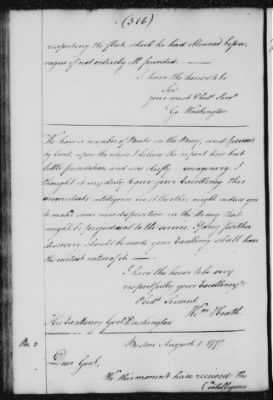 (316)
respecting the fleet which he had altered before
vague if not entirely ill founded. —
I have the honor to be
Sir
your most Obedt Servt
Go Washington
We have a number of Boats in the Bay, and
by land, upon the which I believe the report has but
little foundation, and was chiefly imaginary. I
thought it my duty to give your Excellency this
immediate intelligence, as it might induce you
to make some new disposition in the Army that
might be prejudicial to the service. If any further
discovery should be made your Excellency shall have
the earliest notice of it —
I have the honor to be very
respectfully your Excellency's
Obedt Servant
Wm Heath.
His Excellency Genl Washington
No. 5
Boston August 1. 1777
Dear Genl,
We this moment have received the
Intelligence